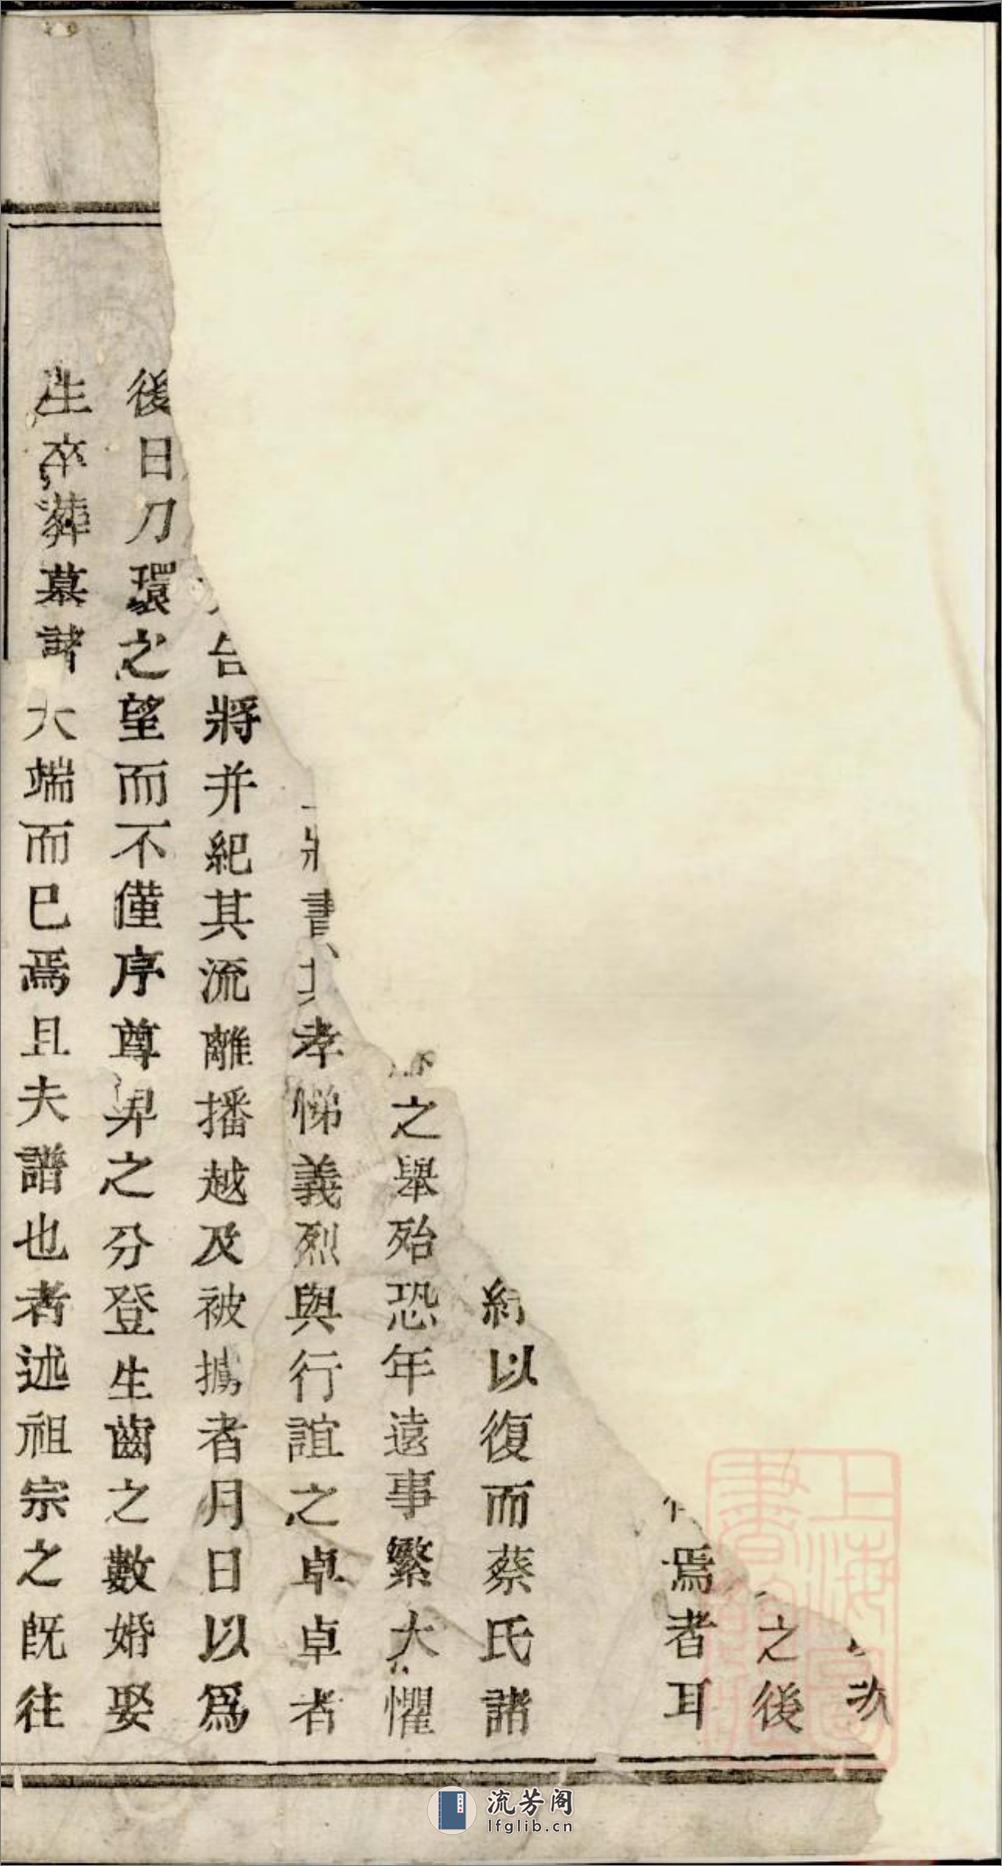 之後
焉者耳
以復而蔡氏諸
之舉殆恐年遠事繁大懼
書其孝悌義烈與行誼之卓卓者
台將并紀其流離播越及被擄者月日以爲
後日刀環之望而不僅序尊卑之分登生齒之數婚娶
生卒葬墓諸大端而已焉且夫譜也者述祖宗之旣往
上海圖書館藏
流芳阁
lfglib.cn